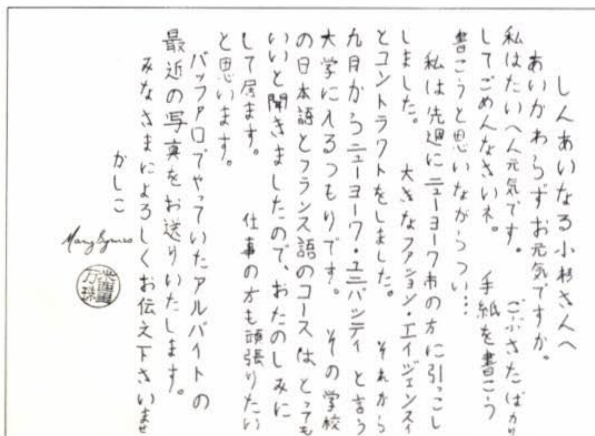 しんあいなる小杉さんへ
あいかわらずお元気ですか。
私はたいへん元気です。 ごぶさたばかり
してごめんなさいネ。 手紙を書こう
書こうと思いながらつい…
私は先週にニューヨーク市の方に引っこし
しました。 大きなファション・エイジェンスィ
とコントラクトをしました。 それから
九月からニューヨーク・ユニバシティと言う
大学に入るつもりです。 その学校
の日本語とフランス語のコースはとっても
いいと聞きましたので、おたのしみに
して居ます。 仕事の方も頑張りたい
と思います。
バッファロでやっていたアルバイトの
最近の写真をお送りいたします。
みなさまによろしくお伝え下さいませ
かしこ
Mary